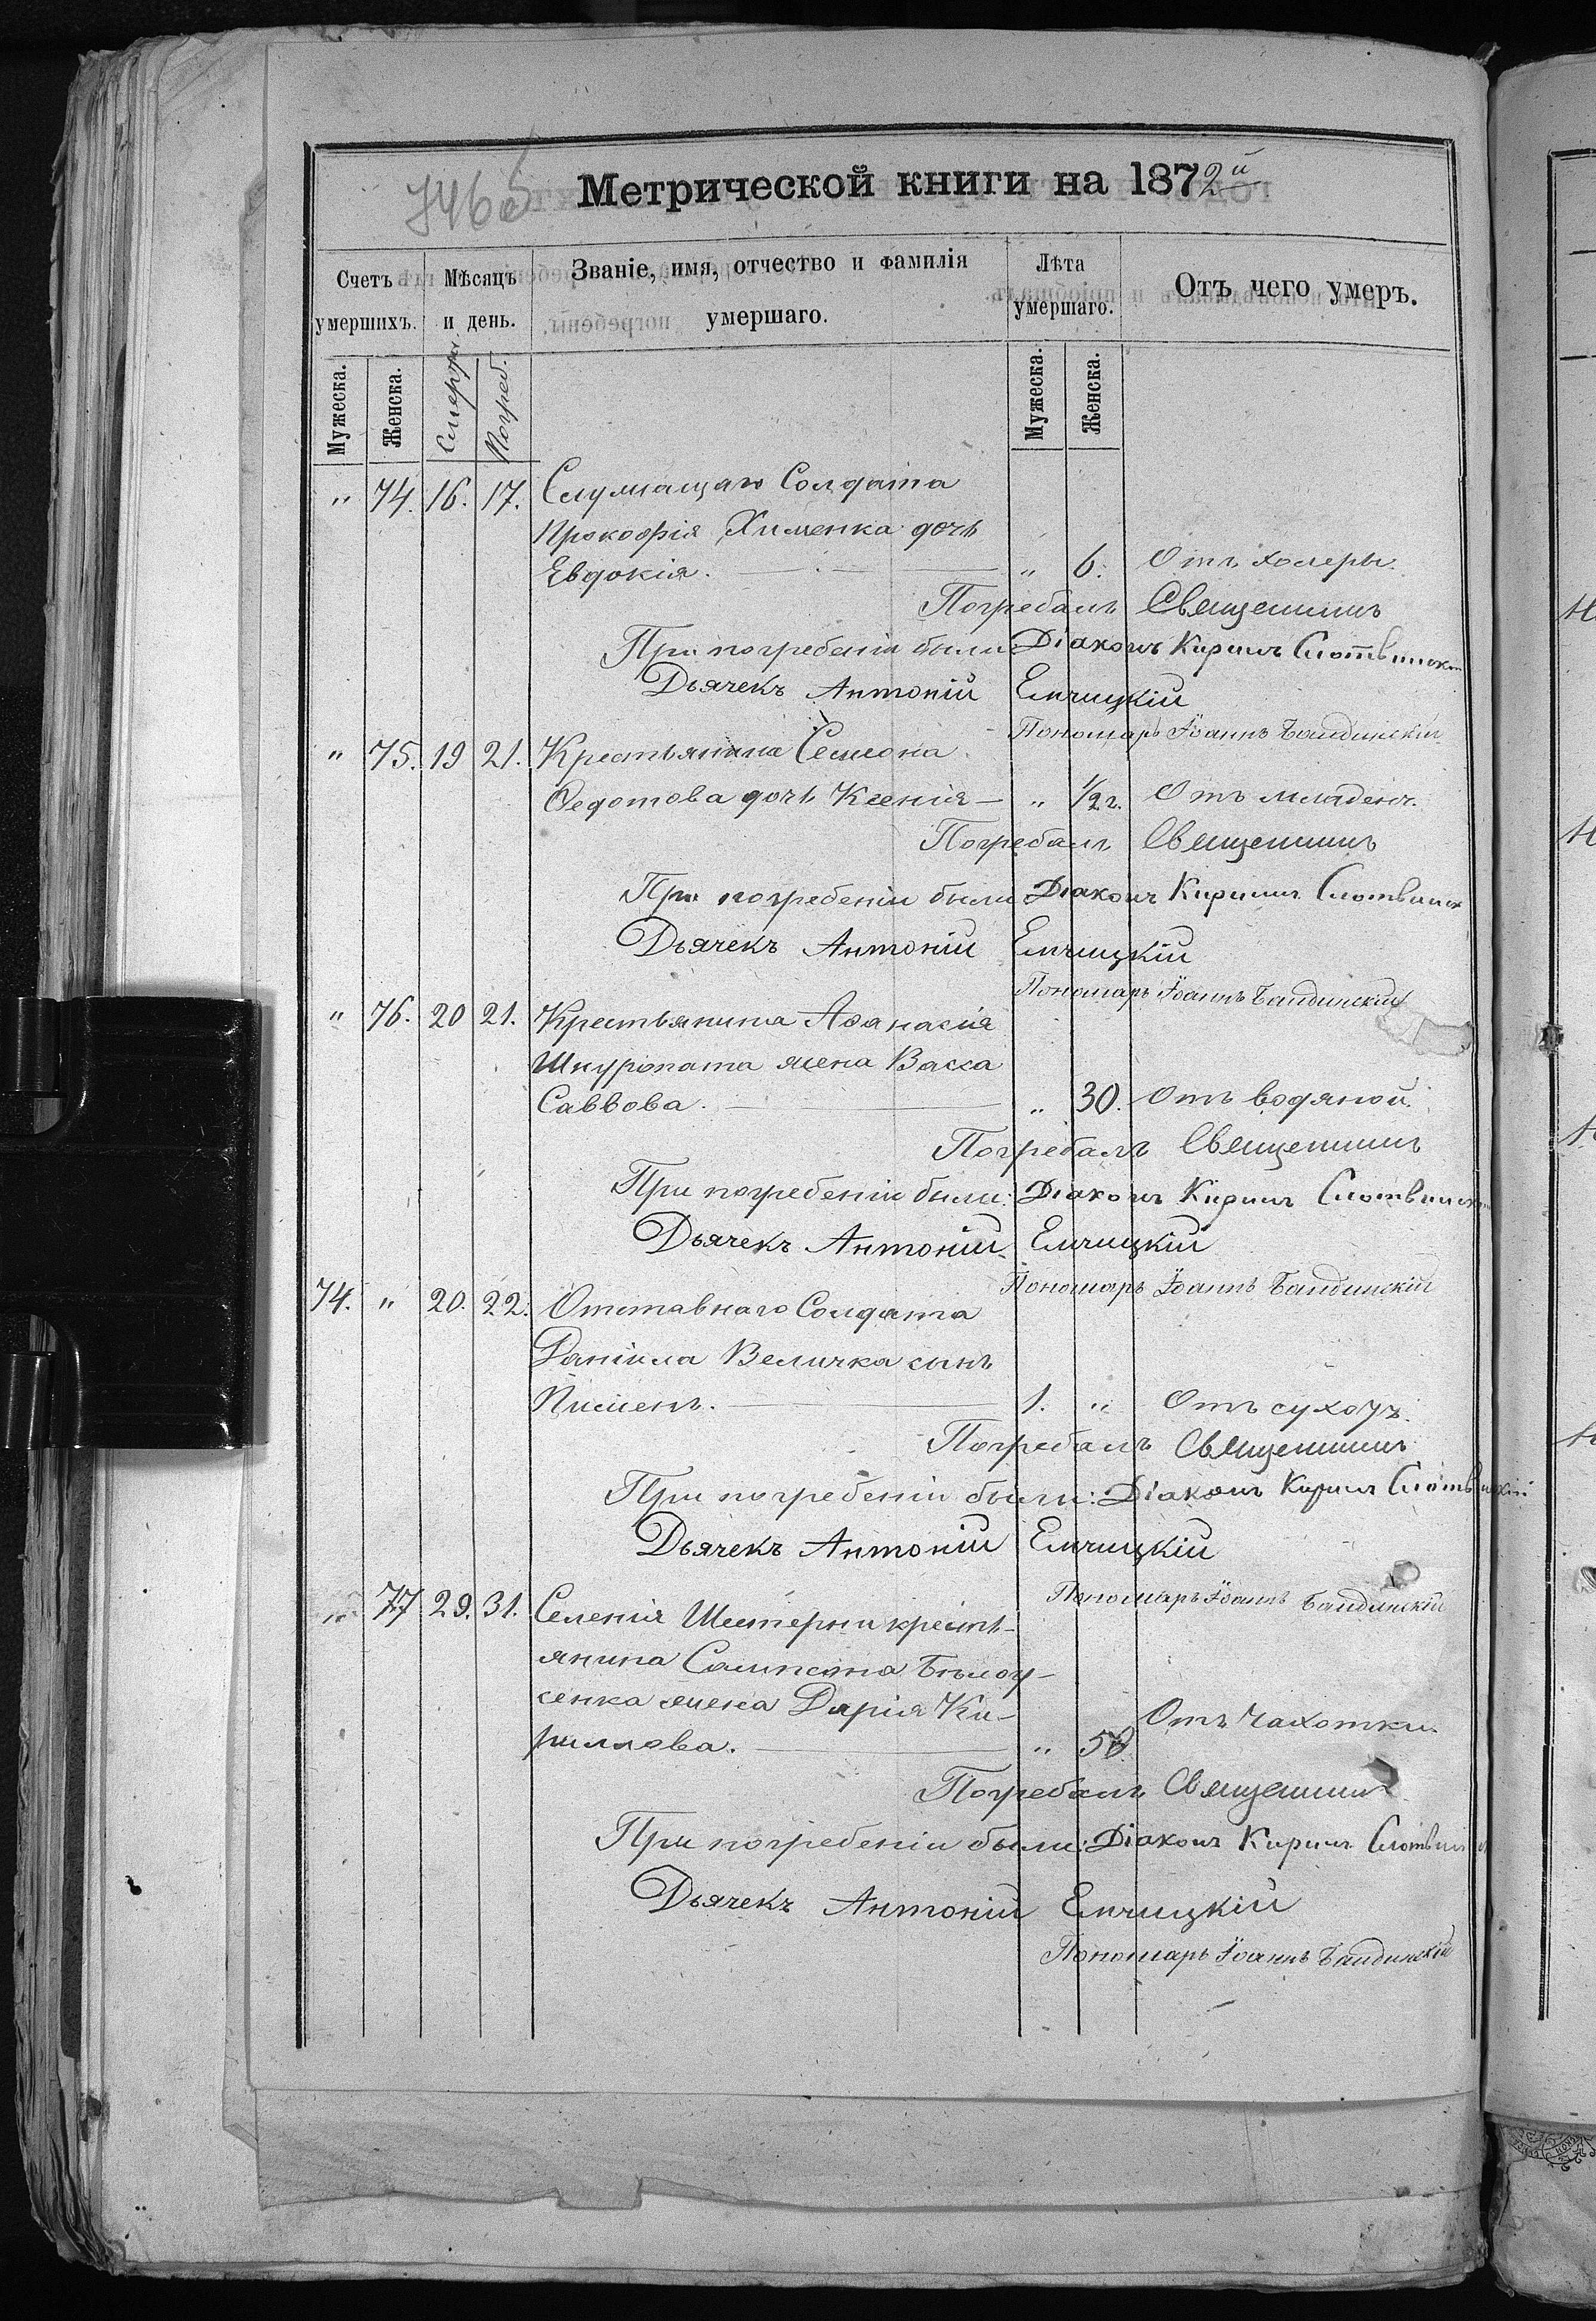 746 б
Метрической книги на 1872й
Счетъ умершихъ.
Мѣсяцъ и день.
Званіе, имя, отчество и фамилія умершаго.
Лѣта умершаго.
Отъ чего умеръ.
Мужеска. Женска. Смерти. Погреб. Мужеска. Женска.
" 74. 16. 17. Служащаго Солдата
Прокофія Хименка дочь
Евдокія. " 6. Отъ холеры.
Погребалъ Священникъ
При погребеніи были Діаконъ Кирилъ Слотвинскій
Дьячекъ Антоній Емчицкій
Пономарь Іоаннъ
" 75. 19 21. Крестьянина Семиона
Ѳедотова дочь Ксенія — " 1/2 г. Отъ младенч.
Погребалъ Священникъ
При погребеніи были Діаконъ Кирилъ Слотвинск
Дьячекъ Антоній Емчицкій
Пономарь Іоаннъ
" 76. 20 21. Крестьянина Аѳанасія
Шкуропата жена Васса
Саввова. " 30. Отъ водяной.
Погребалъ Священникъ
При погребеніи были: Діаконъ Кирилъ Слотвинск
Дьячекъ Антоній Емчицкій
Пономарь Іоаннъ
74. " 20. 22. Отставнаго Солдата
Даніила Величка сынъ
Пименъ. 1. " Отъ сухотъ.
Погребалъ Священникъ
При погребеніи были: Діаконъ Кирилъ Слотвинскій
Дьячекъ Антоній Емчицкій
Пономарь Іоаннъ
" 77 29. 31. Селенія Шестерни кресть-
янина Сампсона Бѣлоу-
сенка жена Дарія Ки-
Отъ чахотки.
риллова. "
Погребалъ Священникъ
При погребеніи были: Діаконъ Кирилъ Слотвин
Дьячекъ Антоній Емчицкій
Пономарь Іоаннъ